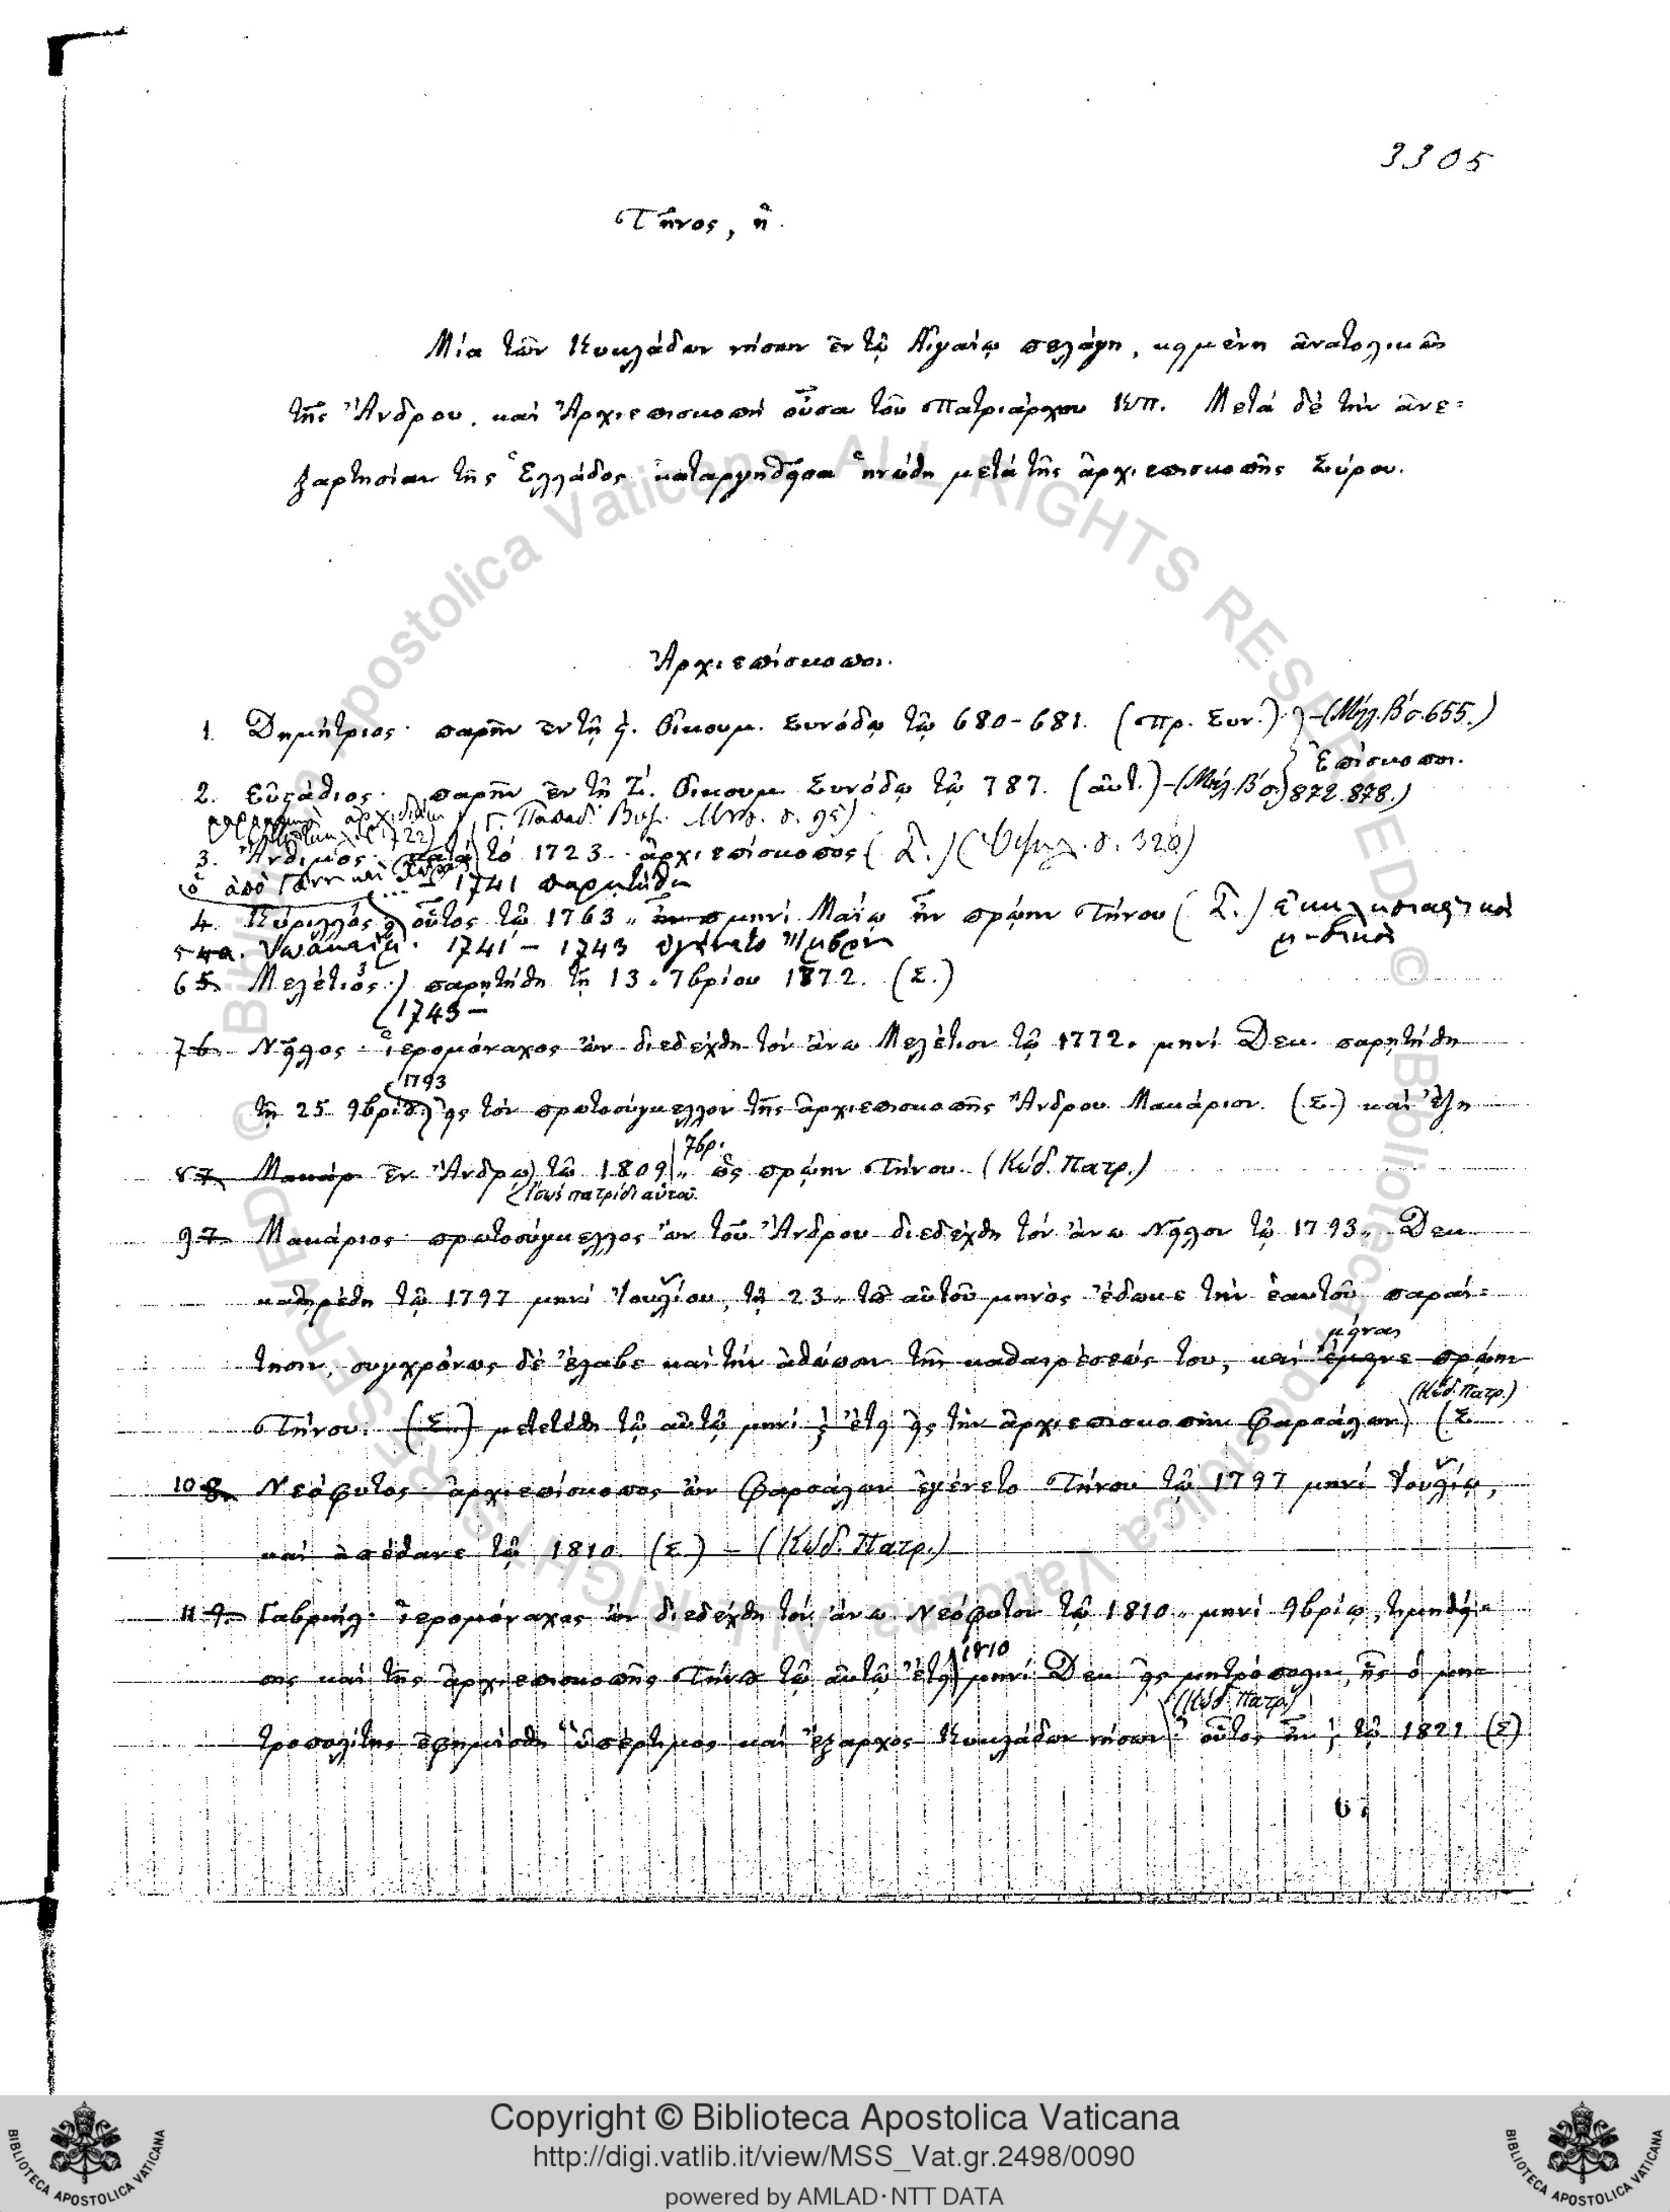 3305
Τῆνος, ἡ.
Μία τῶν Κυκλάδων νήσων ἐν τῷ Αἰγαίῳ πελάγει, κειμένη ἀνατολικῶς
τῆς Ἄνδρου, καὶ Ἀρχιεπισκοπή οὖσα τοῦ Πατριάρχου Κπ. Μετά δὲ τὴν ἀνε=
ξαρτησίαν τῆς Ἑλλάδος καταργηθεῖσα ἡνώθη μετά τῆς ἀρχιεπισκοπῆς Σύρου.
Ἀρχιεπίσκοποι.
1. Δημήτριος· παρῆν ἐν τῇ ϛ΄. Οἰκουμ. Συνόδῳ τῷ 680-681. (Πρ. Συν.) -(Μήλ. Β΄ σ. 655.)
Ἐπίσκοποι.
2. Εὐστάθιος· παρῆν ἐν τῇ Ζ΄. Οἰκουμ. Συνόδῳ τῷ 787. (αὐτ.) -(Μήλ. Β΄ σ. 872. 878.)
(1722) (Γ. Παπαδ. σ. 95)
3. Ἄνθιμος· κατά τό 1723 ἀρχιεπίσκοπος (Σ.) ( σ. 320)
ὁ ἀπό 1741 παρῃτήθη
4. Κύριλλος οὗτος τῷ 1763 μηνί Μαΐῳ ἦν πρῴην Τήνου (Σ.)
5 4α. Ἰωαννίκ. 1741 - 1743 ἐγένετο
6 5. Μελέτιος·) παρῃτήθη τῇ 13. 7βρίου 1772. (Σ.)
(1743 -
7 6. Νεῖλος· ἱερομόναχος ὢν διεδέχθη τόν ἄνω Μελέτιον τῷ 1772. μηνί Δεκ. παρῃτήθη
1793
τῇ 25 9βρίου εἰς τόν πρωτοσύγκελλον τῆς ἀρχιεπισκοπῆς Ἄνδρου Μακάριον. (Σ.) καί ἔζη
7βρ.
8 7. Μακάρ ἐν Ἄνδρῳ τῷ 1809 ὡς πρῴην Τήνου. (Κώδ. Πατρ.)
τῇ πατρίδι αὐτοῦ.
9 7. Μακάριος· πρωτοσύγκελλος ὢν τοῦ Ἄνδρου διεδέχθη τόν ἄνω Νεῖλον τῷ 1793. Δεκ.
καθῃρέθη τῷ 1797 μηνί Ἰουλίου, τῇ 23. τοῦ αὐτοῦ μηνὸς ἔδωκε τὴν ἑαυτοῦ παραί=
τησιν, συγχρόνως δὲ ἔλαβε καὶ τὴν ἀθώωσιν τῆς καθαιρέσεώς του, καί ἔμεινε πρῴην
μείνας
(Κώδ. Πατρ.)
Τήνου. (Σ.) μετετέθη τῷ αὐτῷ μηνί καὶ ἔτει εἰς τὴν ἀρχιεπισκοπὴν Φαρσάλων (Σ.
10 8. Νεόφυτος· ἀρχιεπίσκοπος ὢν Φαρσάλων ἐγένετο Τήνου τῷ 1797 μηνί Ἰουλίῳ,
καί ἀπέθανε τῷ 1810. (Σ.) - (Κώδ. Πατρ.)
11 9. Γαβριήλ· ἱερομόναχος ὢν διεδέχθη τόν ἄνω Νεόφυτον τῷ 1810. μηνί 9βρίῳ, τιμηθεί=
1810
σης καί τῆς ἀρχιεπισκοπῆς Τήνου τῷ αὐτῷ ἔτει μηνί Δεκ. εἰς μητρόπολιν, ἧς ὁ μη=
(Κώδ. Πατρ.)
τροπολίτης ἐφημίσθη ὑπέρτιμος καί ἔξαρχος Κυκλάδων νήσων· οὗτος ἦν τῷ 1821. (Σ)
67
Copyright © Biblioteca Apostolica Vaticana
http://digi.vatlib.it/view/MSS_Vat.gr.2498/0090
powered by AMLAD·NTT DATA
BIBLIOTECA APOSTOLICA VATICANA
BIBLIOTECA APOSTOLICA VATICANA